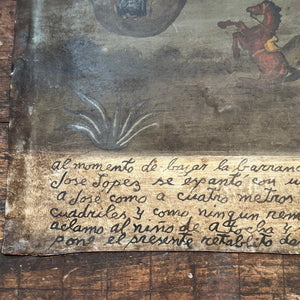 al momento de bajar la barranc
Jose Lopez se expanto con u
a Jose como a cuatro metros
cuadriles, y como ningun rem
aclamo al niño de atocha y
pone el presente retablito do